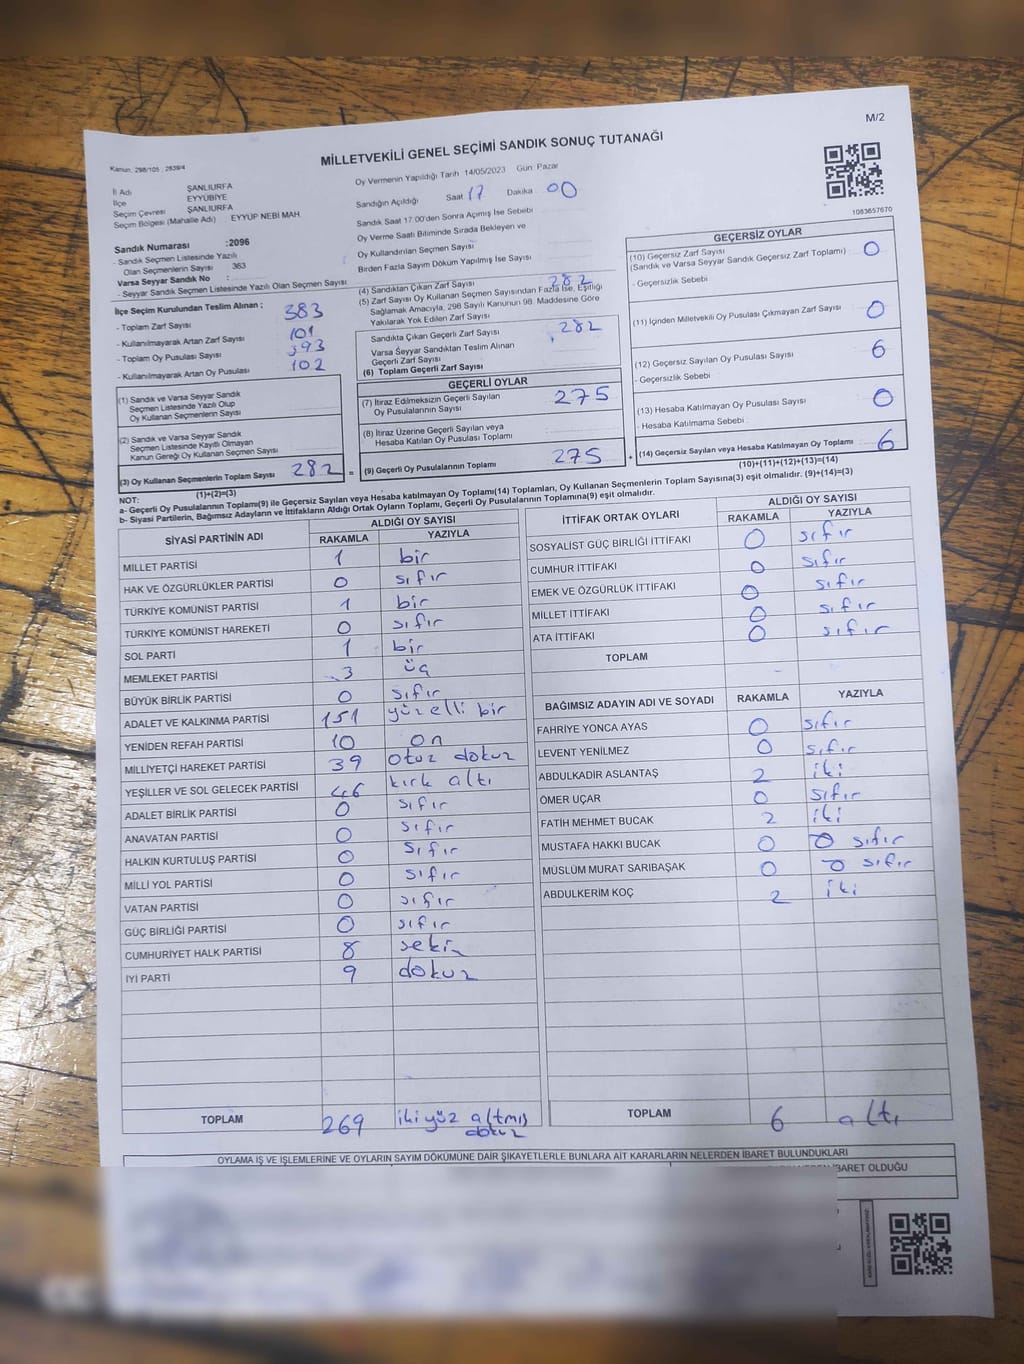 M/2
MİLLETVEKİLİ GENEL SEÇİMİ SANDIK SONUÇ TUTANAĞI
Kanun, 298/105 , 2839/4
İl Adı ŞANLIURFA
İlçe EYYÜBİYE
Seçim Çevresi ŞANLIURFA
Seçim Bölgesi (Mahalle Adı) EYYÜP NEBİ MAH.
Oy Vermenin Yapıldığı Tarih 14/05/2023 Gün: Pazar
Sandığın Açıldığı Saat 17 Dakika 00
Sandık Saat 17:00'den Sonra Açımış İse Sebebi
Oy Verme Saati Bitiminde Sırada Bekleyen ve
Oy Kullandırılan Seçmen Sayısı
Birden Fazla Sayım Döküm Yapılmış İse Sayısı
1083657670
Sandık Numarası :2096
- Sandık Seçmen Listesinde Yazılı
Olan Seçmenlerin Sayısı 363
Varsa Seyyar Sandık No :
- Seyyar Sandık Seçmen Listesinde Yazılı Olan Seçmen Sayısı
İlçe Seçim Kurulundan Teslim Alınan :
- Toplam Zarf Sayısı 383
- Kullanılmayarak Artan Zarf Sayısı 101
- Toplam Oy Pusulası Sayısı 393
- Kullanılmayarak Artan Oy Pusulası 102
(1) Sandık ve Varsa Seyyar Sandık
Seçmen Listesinde Yazılı Olup
Oy Kullanan Seçmenlerin Sayısı
(2) Sandık ve Varsa Seyyar Sandık
Seçmen Listesinde Kayıtlı Olmayan
Kanun Gereği Oy Kullanan Seçmen Sayısı
(3) Oy Kullanan Seçmenlerin Toplam Sayısı 282 =
(1)+(2)=(3)
(4) Sandıktan Çıkan Zarf Sayısı 282
(5) Zarf Sayısı Oy Kullanan Seçmen Sayısından Fazla İse, Eşitliği
Sağlamak Amacıyla, 298 Sayılı Kanunun 98. Maddesine Göre
Yakılarak Yok Edilen Zarf Sayısı
Sandıkta Çıkan Geçerli Zarf Sayısı 282
Varsa Seyyar Sandıktan Teslim Alınan
Geçerli Zarf Sayısı
(6) Toplam Geçerli Zarf Sayısı
GEÇERLİ OYLAR
(7) İtiraz Edilmeksizin Geçerli Sayılan
Oy Pusulalarının Sayısı 275
(8) İtiraz Üzerine Geçerli Sayılan veya
Hesaba Katılan Oy Pusulası Toplamı
(9) Geçerli Oy Pusulalarının Toplamı 275 +
GEÇERSİZ OYLAR
(10) Geçersiz Zarf Sayısı 0
(Sandık ve Varsa Seyyar Sandık Geçersiz Zarf Toplamı)
- Geçersizlik Sebebi
(11) İçinden Milletvekili Oy Pusulası Çıkmayan Zarf Sayısı 0
(12) Geçersiz Sayılan Oy Pusulası Sayısı 6
- Geçersizlik Sebebi
(13) Hesaba Katılmayan Oy Pusulası Sayısı 0
- Hesaba Katılmama Sebebi
(14) Geçersiz Sayılan veya Hesaba Katılmayan Oy Toplamı 6
(10)+(11)+(12)+(13)=(14)
NOT:
a- Geçerli Oy Pusulalarının Toplamı(9) ile Geçersiz Sayılan veya Hesaba katılmayan Oy Toplamı(14) Toplamları, Oy Kullanan Seçmenlerin Toplam Sayısına(3) eşit olmalıdır. (9)+(14)=(3)
b- Siyasi Partilerin, Bağımsız Adayların ve İttifakların Aldığı Ortak Oyların Toplamı, Geçerli Oy Pusulalarının Toplamına(9) eşit olmalıdır.
SİYASİ PARTİNİN ADI ALDIĞI OY SAYISI
RAKAMLA YAZIYLA
MİLLET PARTİSİ 1 bir
HAK VE ÖZGÜRLÜKLER PARTİSİ 0 sıfır
TÜRKİYE KOMÜNİST PARTİSİ 1 bir
TÜRKİYE KOMÜNİST HAREKETİ 0 sıfır
SOL PARTİ 1 bir
MEMLEKET PARTİSİ 3 üç
BÜYÜK BİRLİK PARTİSİ 0 sıfır
ADALET VE KALKINMA PARTİSİ 151 yüzelli bir
YENİDEN REFAH PARTİSİ 10 on
MİLLİYETÇİ HAREKET PARTİSİ 39 otuz dokuz
YEŞİLLER VE SOL GELECEK PARTİSİ 46 kırk altı
ADALET BİRLİK PARTİSİ 0 sıfır
ANAVATAN PARTİSİ 0 sıfır
HALKIN KURTULUŞ PARTİSİ 0 sıfır
MİLLİ YOL PARTİSİ 0 sıfır
VATAN PARTİSİ 0 sıfır
GÜÇ BİRLİĞİ PARTİSİ 0 sıfır
CUMHURİYET HALK PARTİSİ 8 sekiz
İYİ PARTİ 9 dokuz
TOPLAM 269 ikiyüz altmış
dokuz
İTTİFAK ORTAK OYLARI ALDIĞI OY SAYISI
RAKAMLA YAZIYLA
SOSYALİST GÜÇ BİRLİĞİ İTTİFAKI 0 sıfır
CUMHUR İTTİFAKI 0 sıfır
EMEK VE ÖZGÜRLÜK İTTİFAKI 0 sıfır
MİLLET İTTİFAKI 0 sıfır
ATA İTTİFAKI 0 sıfır
TOPLAM
BAĞIMSIZ ADAYIN ADI VE SOYADI RAKAMLA YAZIYLA
FAHRİYE YONCA AYAS 0 sıfır
LEVENT YENİLMEZ 0 sıfır
ABDULKADİR ASLANTAŞ 2 iki
ÖMER UÇAR 0 sıfır
FATİH MEHMET BUCAK 2 iki
MUSTAFA HAKKI BUCAK 0 0 sıfır
MÜSLÜM MURAT SARIBAŞAK 0 0 sıfır
ABDULKERİM KOÇ 2 iki
TOPLAM 6 altı
OYLAMA İŞ VE İŞLEMLERİNE VE OYLARIN SAYIM DÖKÜMÜNE DAİR ŞİKAYETLERLE BUNLARA AİT KARARLARIN NELERDEN İBARET BULUNDUKLARI
İBARET OLDUĞU